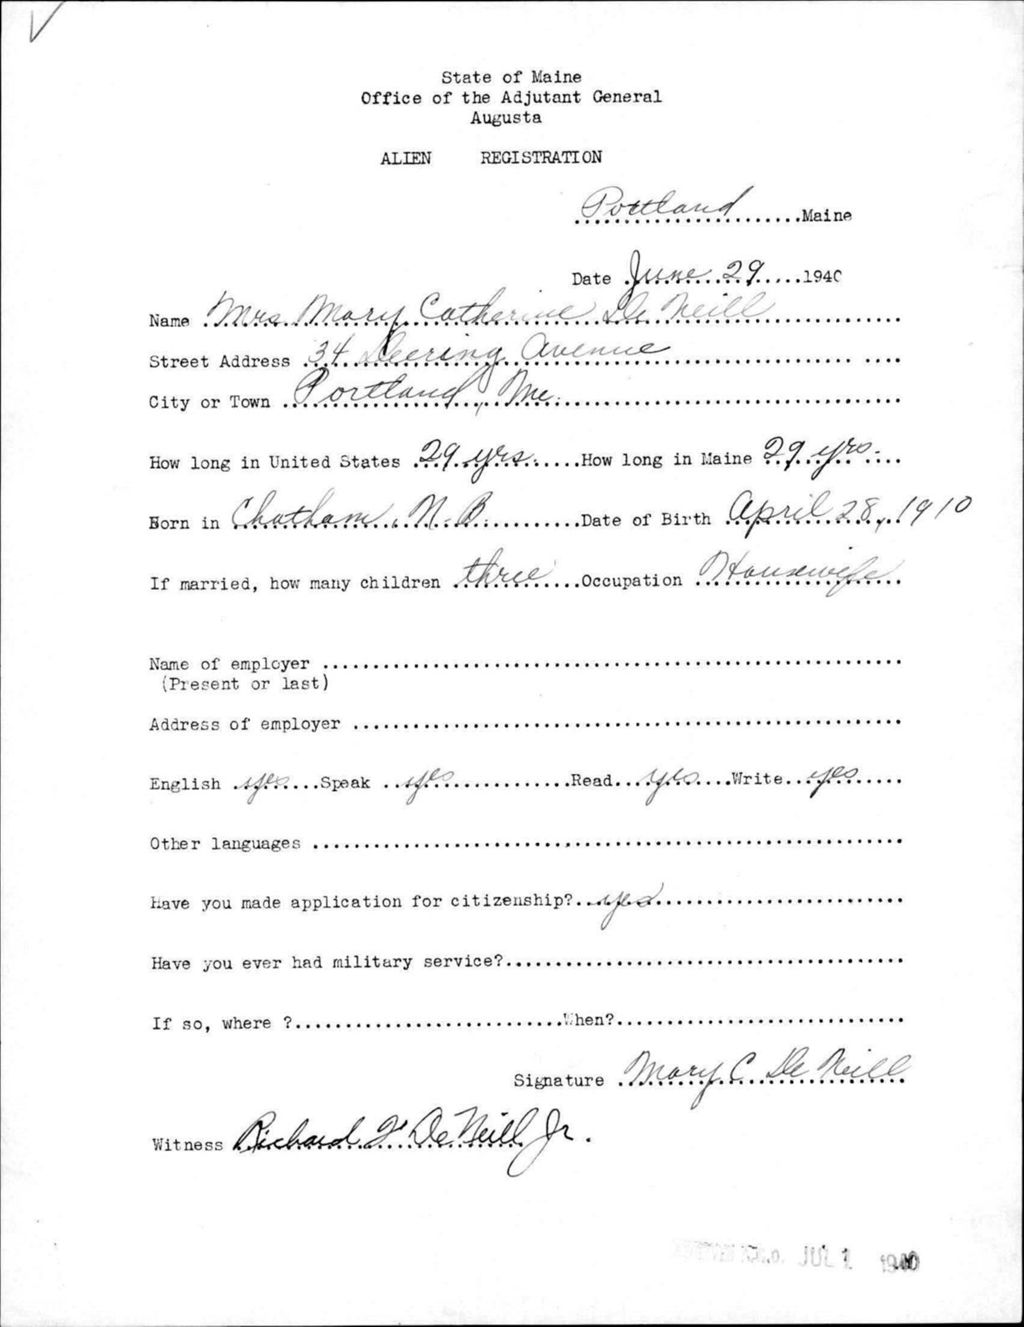 State of Maine
Office of the Adjutant General
Augusta
ALIEN REGISTRATION
Portland Maine
Date June 29 1940
Name Mrs. Mary Catherine De Neill
Street Address 34 Deering Avenue
City or Town Portland, Me.
How long in United States 29 yrs. How long in Maine 29 yrs.
Born in Chatham, N.B. Date of Birth April 28, 1910
If married, how many children three Occupation Housewife
Name of employer
(Present or last)
Address of employer
English yes Speak yes Read yes Write yes
Other languages
Have you made application for citizenship? yes
Have you ever had military service?
If so, where ? When?
Signature Mary C. De Neill
Witness Richard F. De Neill Jr.
JUL 1 1940